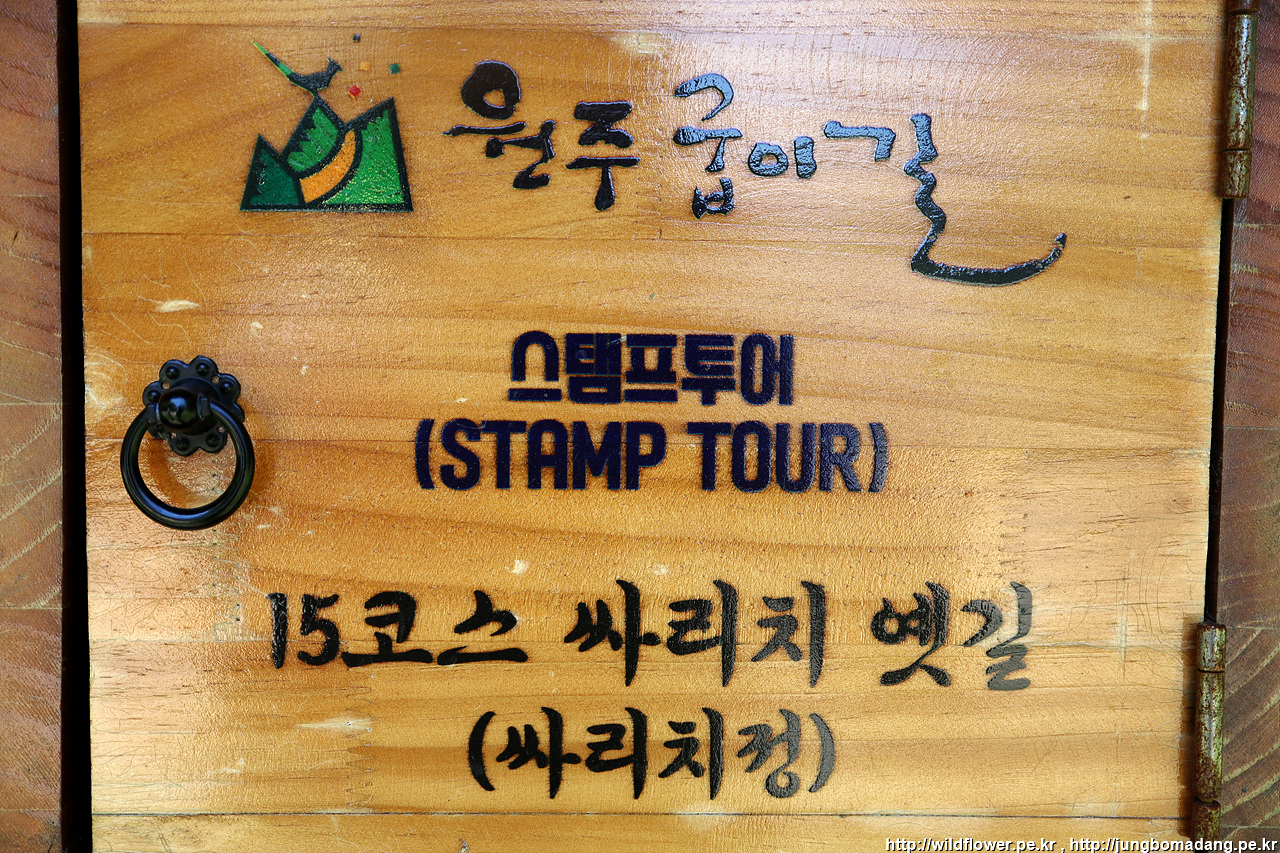 원주 굽이길
스탬프투어
(STAMP TOUR)
15코스 싸리치 옛길
(싸리치컹)
http://wildflower.pe.kr , http://jungbomadang.pe.kr